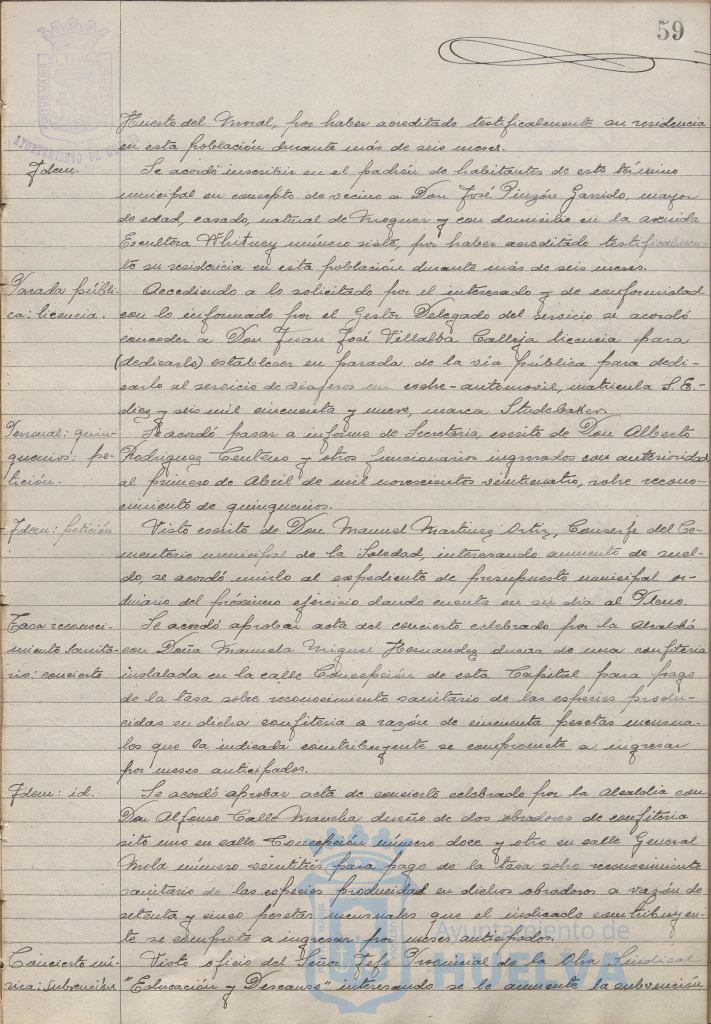 59
Huerto del Moral, por haber acreditado testificalmente su residencia
en esta población durante más de seis meses.
Idem. Se acordó inscribir en el padrón de habitantes de este término
municipal en concepto de vecino a Don José Pinzón Garrido, mayor
de edad, casado, natural de Moguer y con domicilio en la avenida
Escultora Whitney número siete, por haber acreditado testificalmen-
te su residencia en esta población durante más de seis meses.
Parada públi- Accediendo a lo solicitado por el interesado y de conformidad
ca: licencia. con lo informado por el Gestor Delegado del servicio se acordó
conceder a Don Juan José Villalba Calleja licencia para
(dedicarlo) establecer en parada de la vía pública para dedi-
carlo al servicio de viajeros un coche-automovil, matrícula S.E.-
diez y seis mil cincuenta y nueve, marca Studebaker.
Personal: quin- Se acordó pasar a informe de Secretaría, escrito de Don Alberto
quenios: pe- Rodriguez Centeno y otros funcionarios ingresados con anterioridad
tición. al primero de Abril de mil novecientos veinticuatro, sobre recono-
cimiento de quinquenios.
Idem: petición Visto escrito de Don Manuel Martinez Ortiz, Conserje del Ce-
menterio municipal de la Soledad, interesando aumento de suel-
do, se acordó unirlo al expediente de presupuesto municipal or-
dinario del próximo ejercicio dando cuenta en su dia al Pleno.
Tasa reconoci- Se acordó aprobar acta del concierto celebrado por la Alcaldía
miento sanita- con Doña Manuela Miguel Hernandez dueña de una confitería
rio: concierto instalada en la calle Concepción de esta Capital para pago
de la tasa sobre reconocimiento sanitario de las especies produ-
cidas en dicha confitería a razón de cincuenta pesetas mensua-
les que la indicada contribuyente se compromete a ingresar
por meses anticipados.
Idem: id. Se acordó aprobar acta de concierto celebrado por la Alcaldía con
Don Alfonso Calle Mancha dueño de dos obradores de confitería
sito uno en calle Concepción número doce y otro en calle General
Mola número veintitrés para pago de la tasa sobre reconocimiento
sanitario de las especies producidad en dichos obradores a razón de
setenta y cinco pesetas mensuales que el indicado contribuyen-
te se comprote a ingresar por meses anticipados.
Concierto mú- Visto oficio del Señor Jefe Provincial de la Obra Sindical
sica: subvención "Educación y Descanso" interesando se le aumente la subvención
Ayuntamiento de
HUELVA